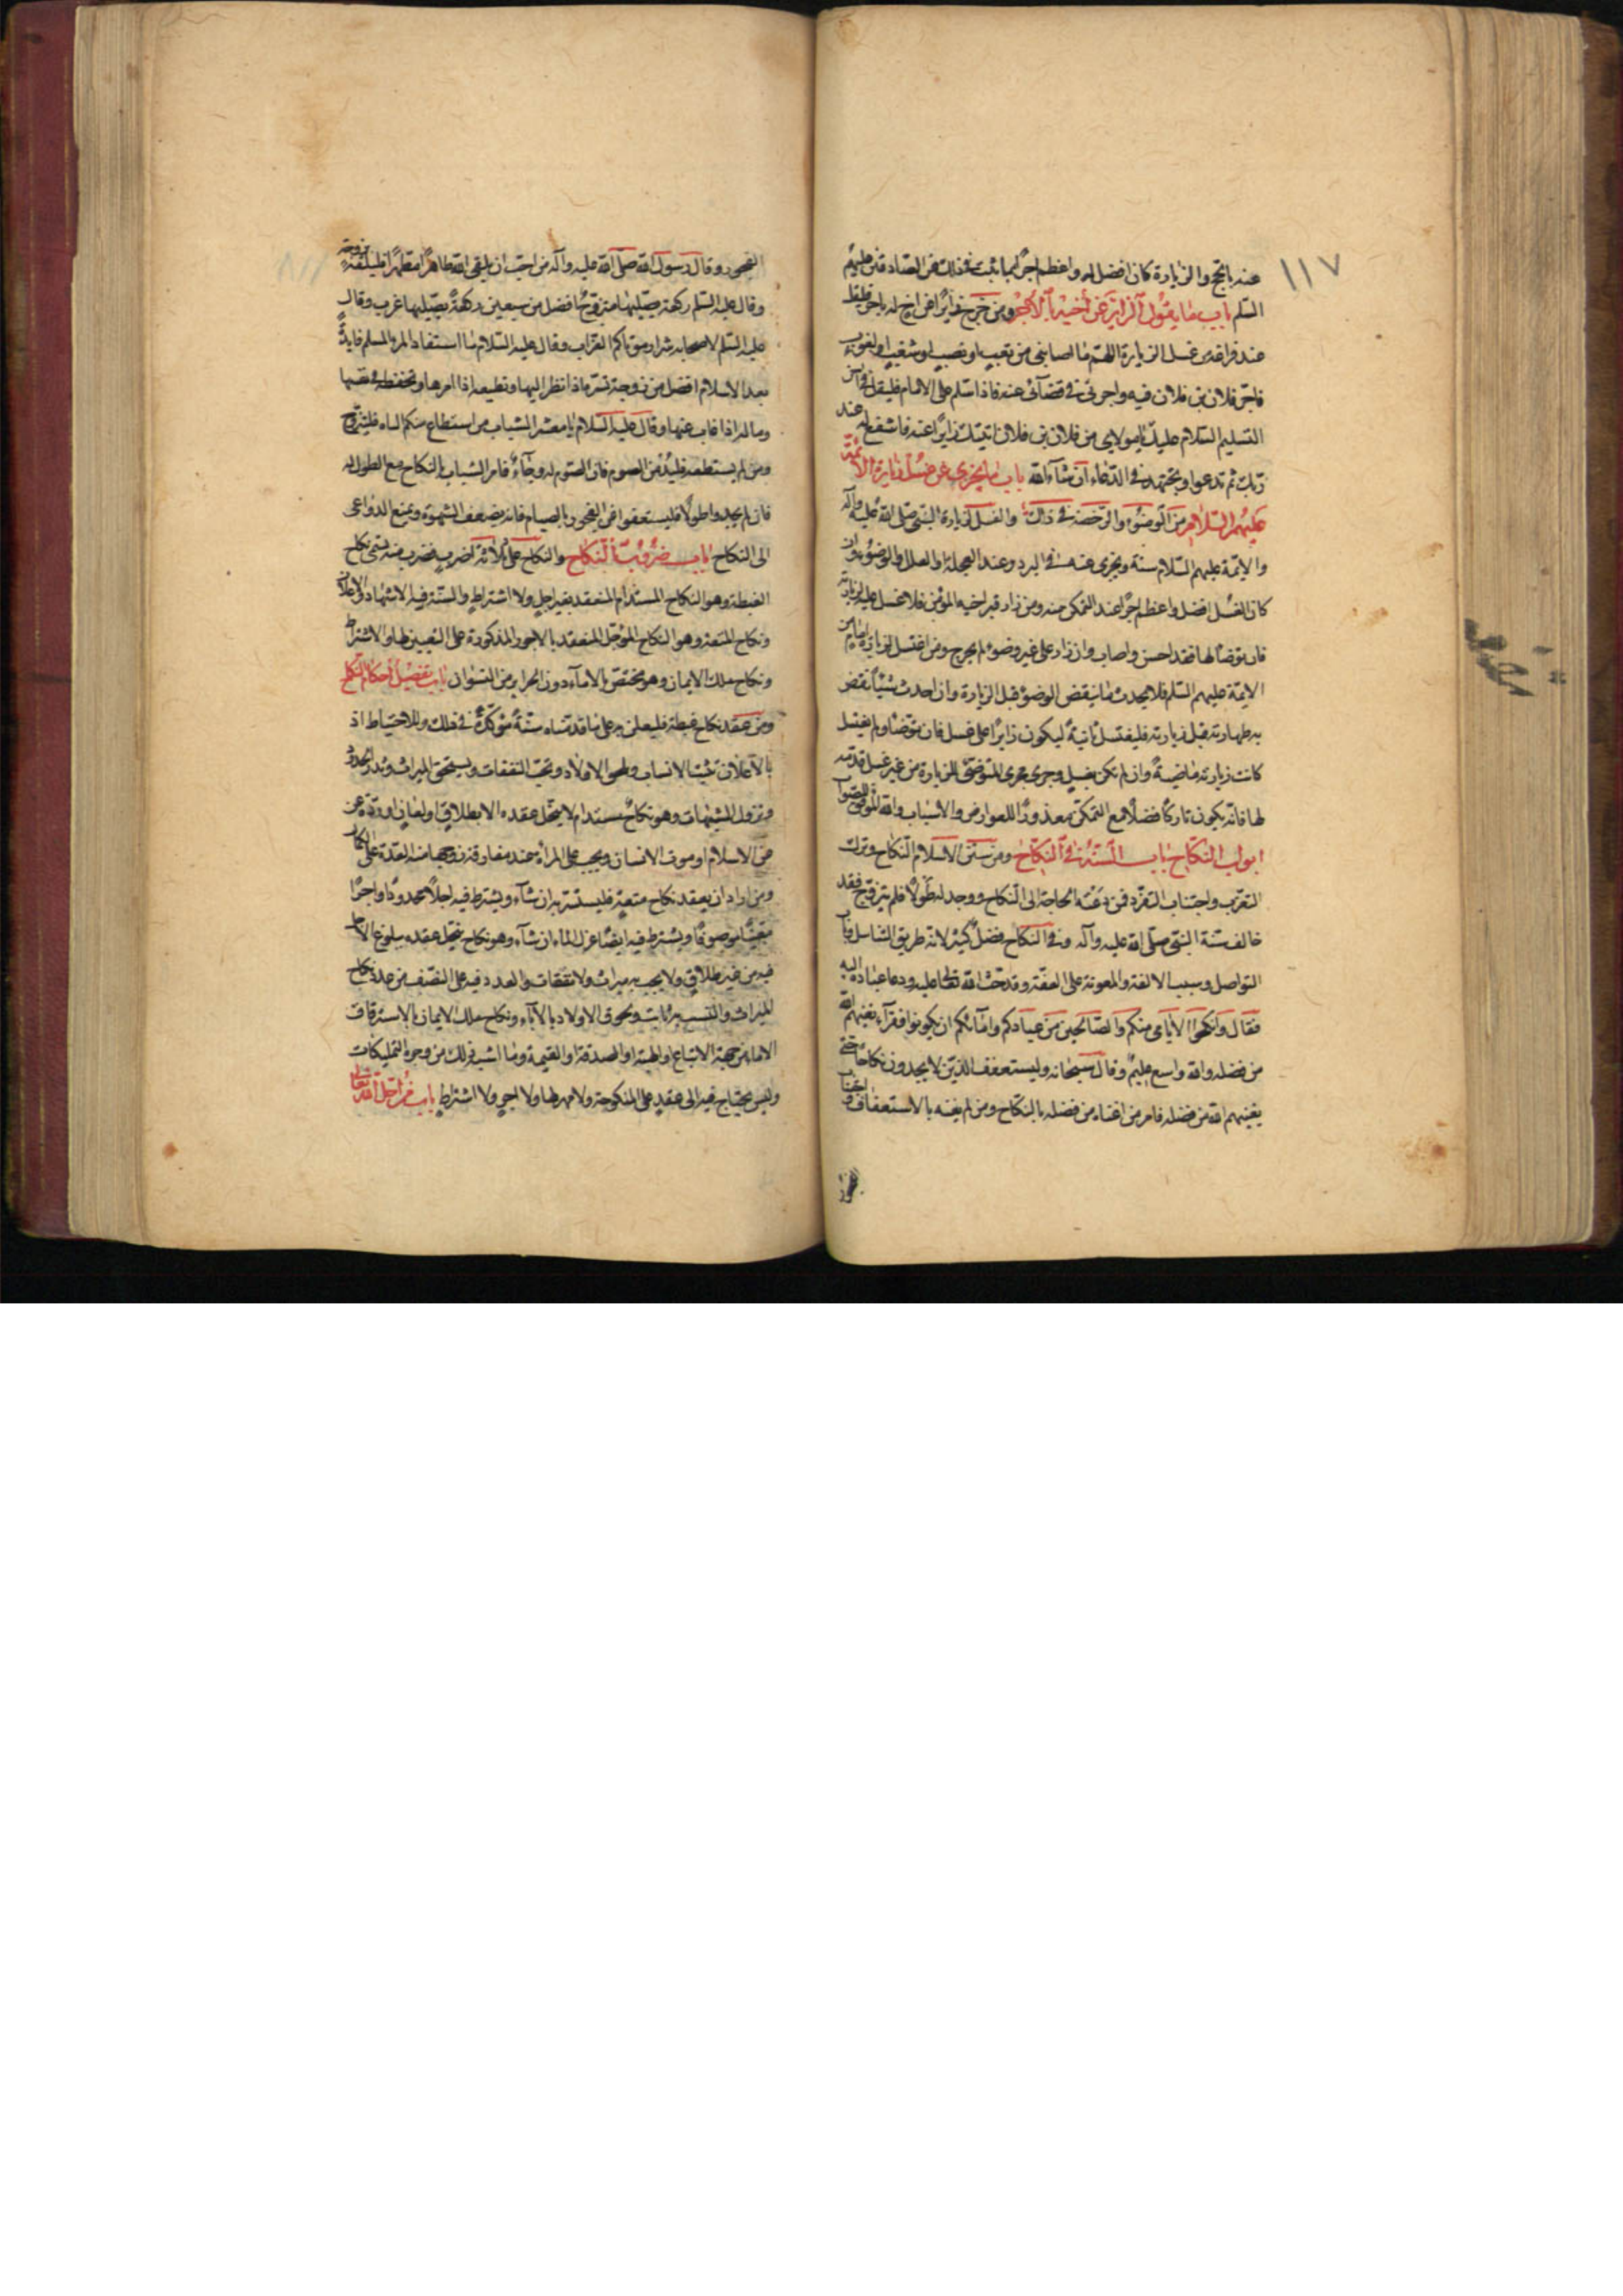 ١١٧
عنه بالحج والزيارة كان افضل له واعظم اجرًا بما يثبت في ذلك عن الصادقين عليهم
السّلم باب ما يقول الزاير عن أخيه بالأجر ومن خرج زايرًا عن اخ له باجر فليقل
عند فراغه من غسل الزيارة اللهم ما اصابني من تعب او نصب او شغب او لغوب
فاجر فلان بن فلان فيه واجرني في قضائي عنه فاذا سلم على الامام فليقل في آخر
التسليم السّلام عليك يا مولاي من فلان بن فلان اتيتك زايرًا عنه فاشفع له عند
ربك ثم تدعوا وتجتهد في الدّعاء ان شاء الله باب ما يجزي عن غسل زيارة الأئمة
عليهم السّلام من الوضوء والرخصة في ذلك والغسل لزيارة النبي صلى الله عليه وآله
والايمّة عليهم السّلام سنة ويجزي عنه في البرد وعند العجلة والعلل الوضوء وان
كان الغسل افضل واعظم اجرًا عند التمكن منه ومن زار قبر اخيه المؤمن فلا غسل عليه لزيارته
فان توضأ لها فقد احسن واصاب وان زار على غير وضوء لم يحرج ومن اغتسل لزيارة امام من
الايمّة عليهم السّلم فلا يحدث ما ينقض الوضوء قبل الزيارة وان احدث شيئًا نقض
به طهارته قبل زيارته فليغتسل ثانية ليكون زايرًا على غسل فان توضأ ولم يغتسل
كانت زيارته ماضية وان لم تكن بغسل وجرى مجرى المتوضي للزيارة من غير غسل قدمه
لها فانه يكون تاركًا فضلًا مع التمكن معذورًا للعوارض والاسباب والله الموفق للصواب
ابواب النكاح باب السنة في النكاح ومن سنن الاسلام النكاح وترك
التعزب واجتناب التفرد فمن دعته الحاجة الى النكاح ووجد له طولًا فلم يتزوج فقد
خالف سنة النبي صلى الله عليه وآله وفي النكاح فضل كثير لانه طريق التناسل وباب
التواصل وسبب الالفة والمعونة على العفّة وقد حث الله تعالى عليه ودعا عباده اليه
فقال وانكحوا الأيامى منكم والصالحين من عبادكم وامائكم ان يكونوا فقراء يغنيهم الله
من فضله والله واسع عليم وقال سبحانه وليستعفف الذين لا يجدون نكاحًا حتى
يغنيهم الله من فضله فامر من اغناه من فضله بالنكاح ومن لم يغنه بالاستعفاف
الفجور وقال رسول الله صلى الله عليه وآله من احب ان يلقى الله طاهرًا مطهرًا فليلقه بزوجة
وقال عليه السّلم ركعة يصليها متزوج افضل من سبعين ركعة يصليها عزب وقال
عليه السّلم لاصحابه شرار موتاكم العزاب وقال عليه السّلام ما استفاد المرء المسلم فايدة
بعد الاسلام افضل من زوجة تسره اذا نظر اليها وتطيعه اذا امرها وتحفظه في نفسها
وماله اذا غاب عنها وقال عليه السّلام يا معشر الشباب من استطاع منكم الباه فليتزوج
ومن لم يستطعه فليدمن الصوم فان الصوم له وجاء فامر الشباب بالنكاح مع الطول له
فان لم يجدوا طولًا فليستعفوا عن الفجور بالصيام فانه يضعف الشهوة ويمنع الدواعى
الى النكاح باب ضروب النكاح والنكاح على ثلاثة اضرب فضرب منه يسمى نكاح
الغبطة وهو النكاح المستدام المنعقد بغير اجل ولا اشتراط والسنة فيه الاشهاد والاعلان
ونكاح المتعة وهو النكاح المؤجل المنعقد بالاجور المذكورة على التعيين لها والاشتراط
ونكاح ملك الايمان وهو مختص بالاماء دون الحراير من النسوان باب تفصيل احكام النكاح
ومن عقد نكاح غبطة فليعلن به على ما قدمناه سنة مؤكدة في ذلك وللاحتياط اذ
بالاعلان تثبت الانساب ولحق الاولاد وتجب النفقات ويستحق الميراث وتدرأ الحدود
وتزول الشبهات وهو نكاح مستدام لا ينحل عقده الا بطلاق او لعان او ردة عن
الاسلام او موت الانسان ويجب على المرأة عند مفارقة زوجها منه العدة على
ومن اراد ان يعقد نكاح متعة فليستتر به ان شاء ويشترط فيه اجلًا محدودًا واجرًا
معينًا موصوفًا ويشترط فيه ايضًا عزل الماء ان شاء وهو نكاح ينحل عقده ببلوغ الاجل
فيه من غير طلاق ولا يجب به ميراث ولا نفقات والعدد فيه على النصف من عدد نكاح
الميراث والنسب به ثابت ولحوق الاولاد بالآباء ونكاح ملك الايمان بالاسترقاق
الاماء من جهة الابتياع او الهبة او الصدقة او الغنيمة وما اشبه ذلك من وجوه التمليكات
وليس يحتاج فيه الى عقد على المنكوحة ولا مهر لها ولا اجر ولا اشتراط باب من احل الله تعالى